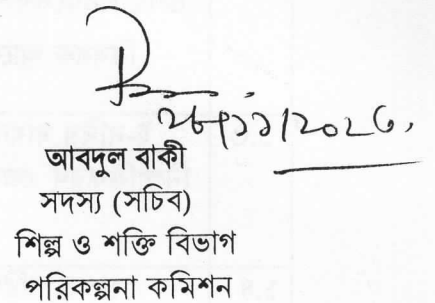 আবদুল বাকী
সদস্য (সচিব)
শিল্প ও শক্তি বিভাগ
পরিকল্পনা কমিশন